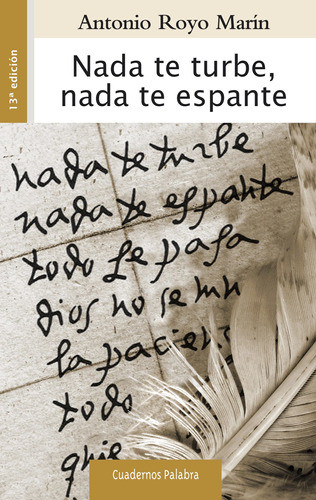 Antonio Royo Marín
13ª edición
Nada te turbe,
nada te espante
nada te turbe
nada te espante
todo se pasa
dios no se mu
la pacien
todo
quie
Cuadernos Palabra